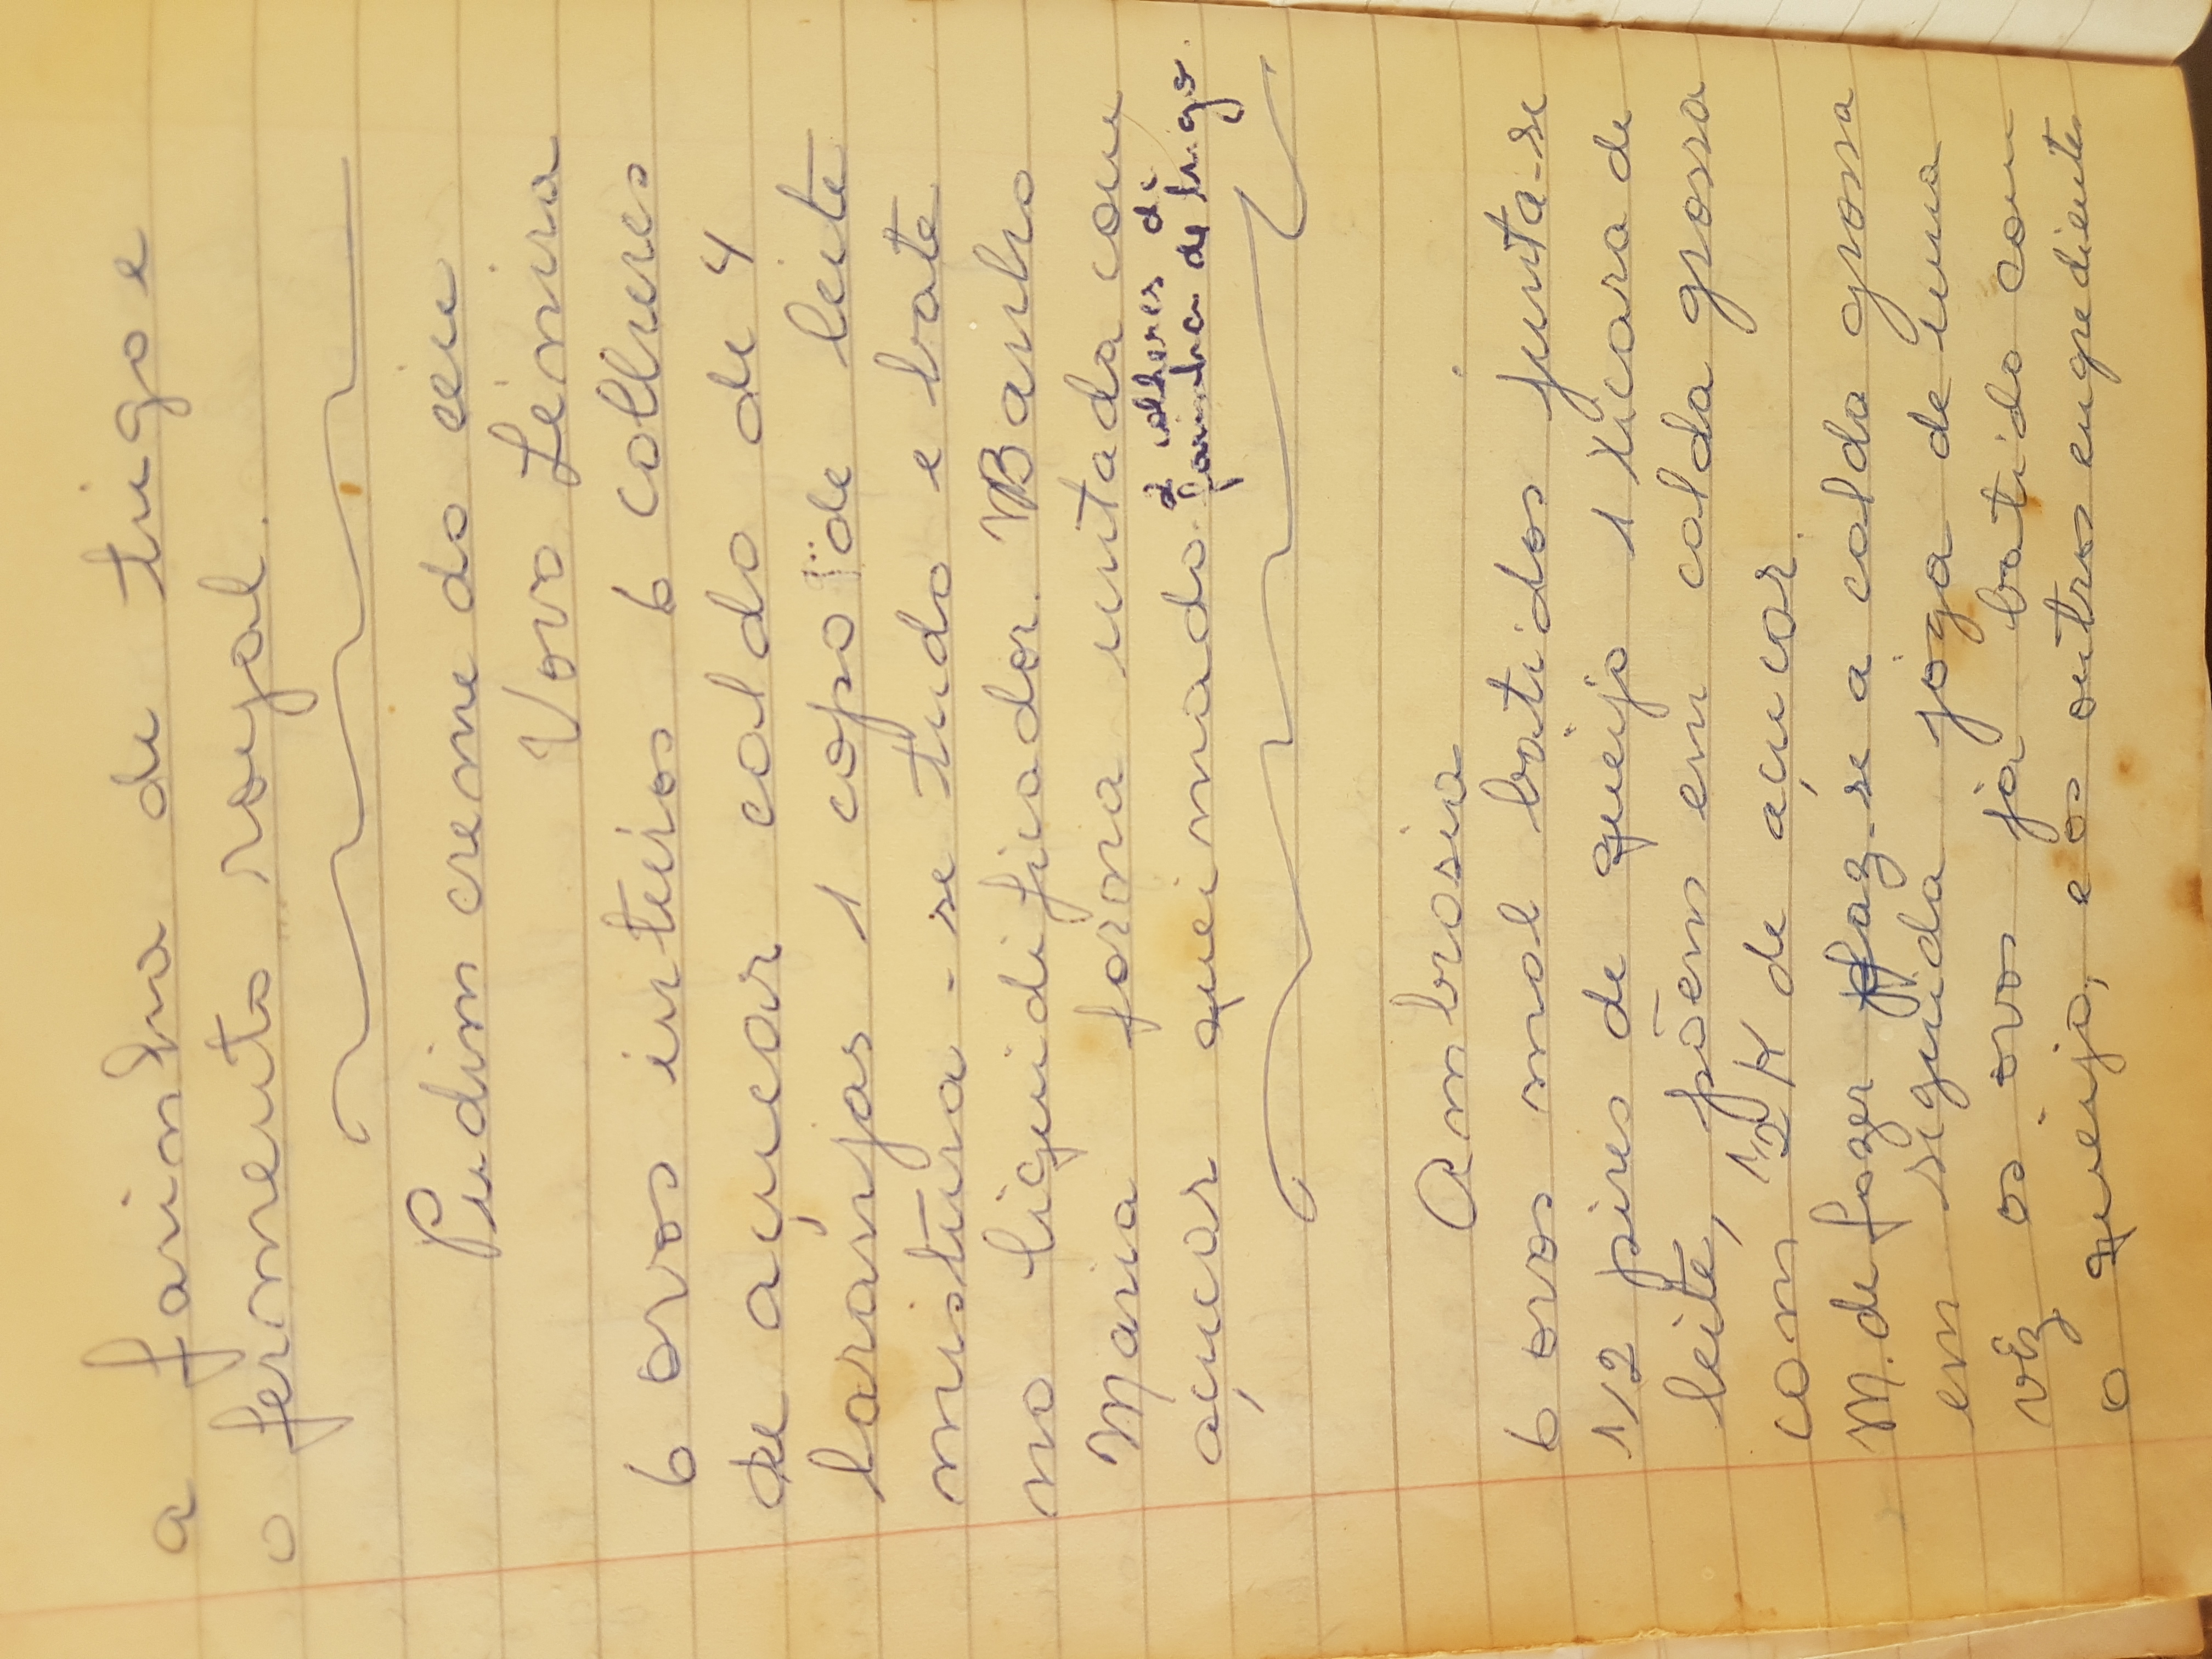 a farinha de trigo e
o fermento royal.
Pudim creme do céu
Vovo Zemira
6 ovos inteiros 6 colheres
de açucar caldo de 4
laranjas 1 copo de leite
mistura-se tudo e bate
no liquidificador. Banho
Maria forma untada com
açucar queimado. 2 colheres de
farinha de trigo.
Ambrosia
6 ovos mal batidos junta-se
1/2 pires de queijo 1 xicara de
leite, põem em calda grossa
com 1/2 K de açucar.
M. de fazer faz-se a calda grossa
em siguida joga de uma
vêz os ovos já batido com
o queijo, e os outros engredientes